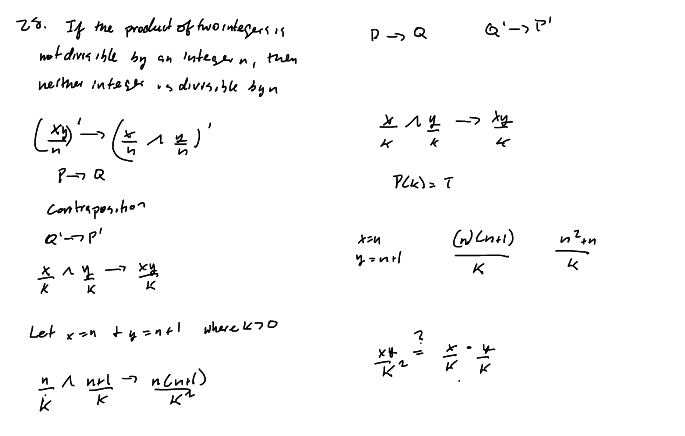 28. If the product of two integers is
not divisible by an integer n, then
neither integer is divisible by n
P → Q    Q' → P'
(xy/n)' → (x/n ∧ y/n)'
P → Q
Contraposition
Q' → P'
x/k ∧ y/k → xy/k
Let x = n + y = n+1 where k > 0
n/k ∧ n+1/k → n(n+1)/k²
x/k ∧ y/k → xy/k
P(k) = T
x=n
y=n+1
(n)(n+1)/k    n²+n/k
xy/k² ?= x/k · y/k